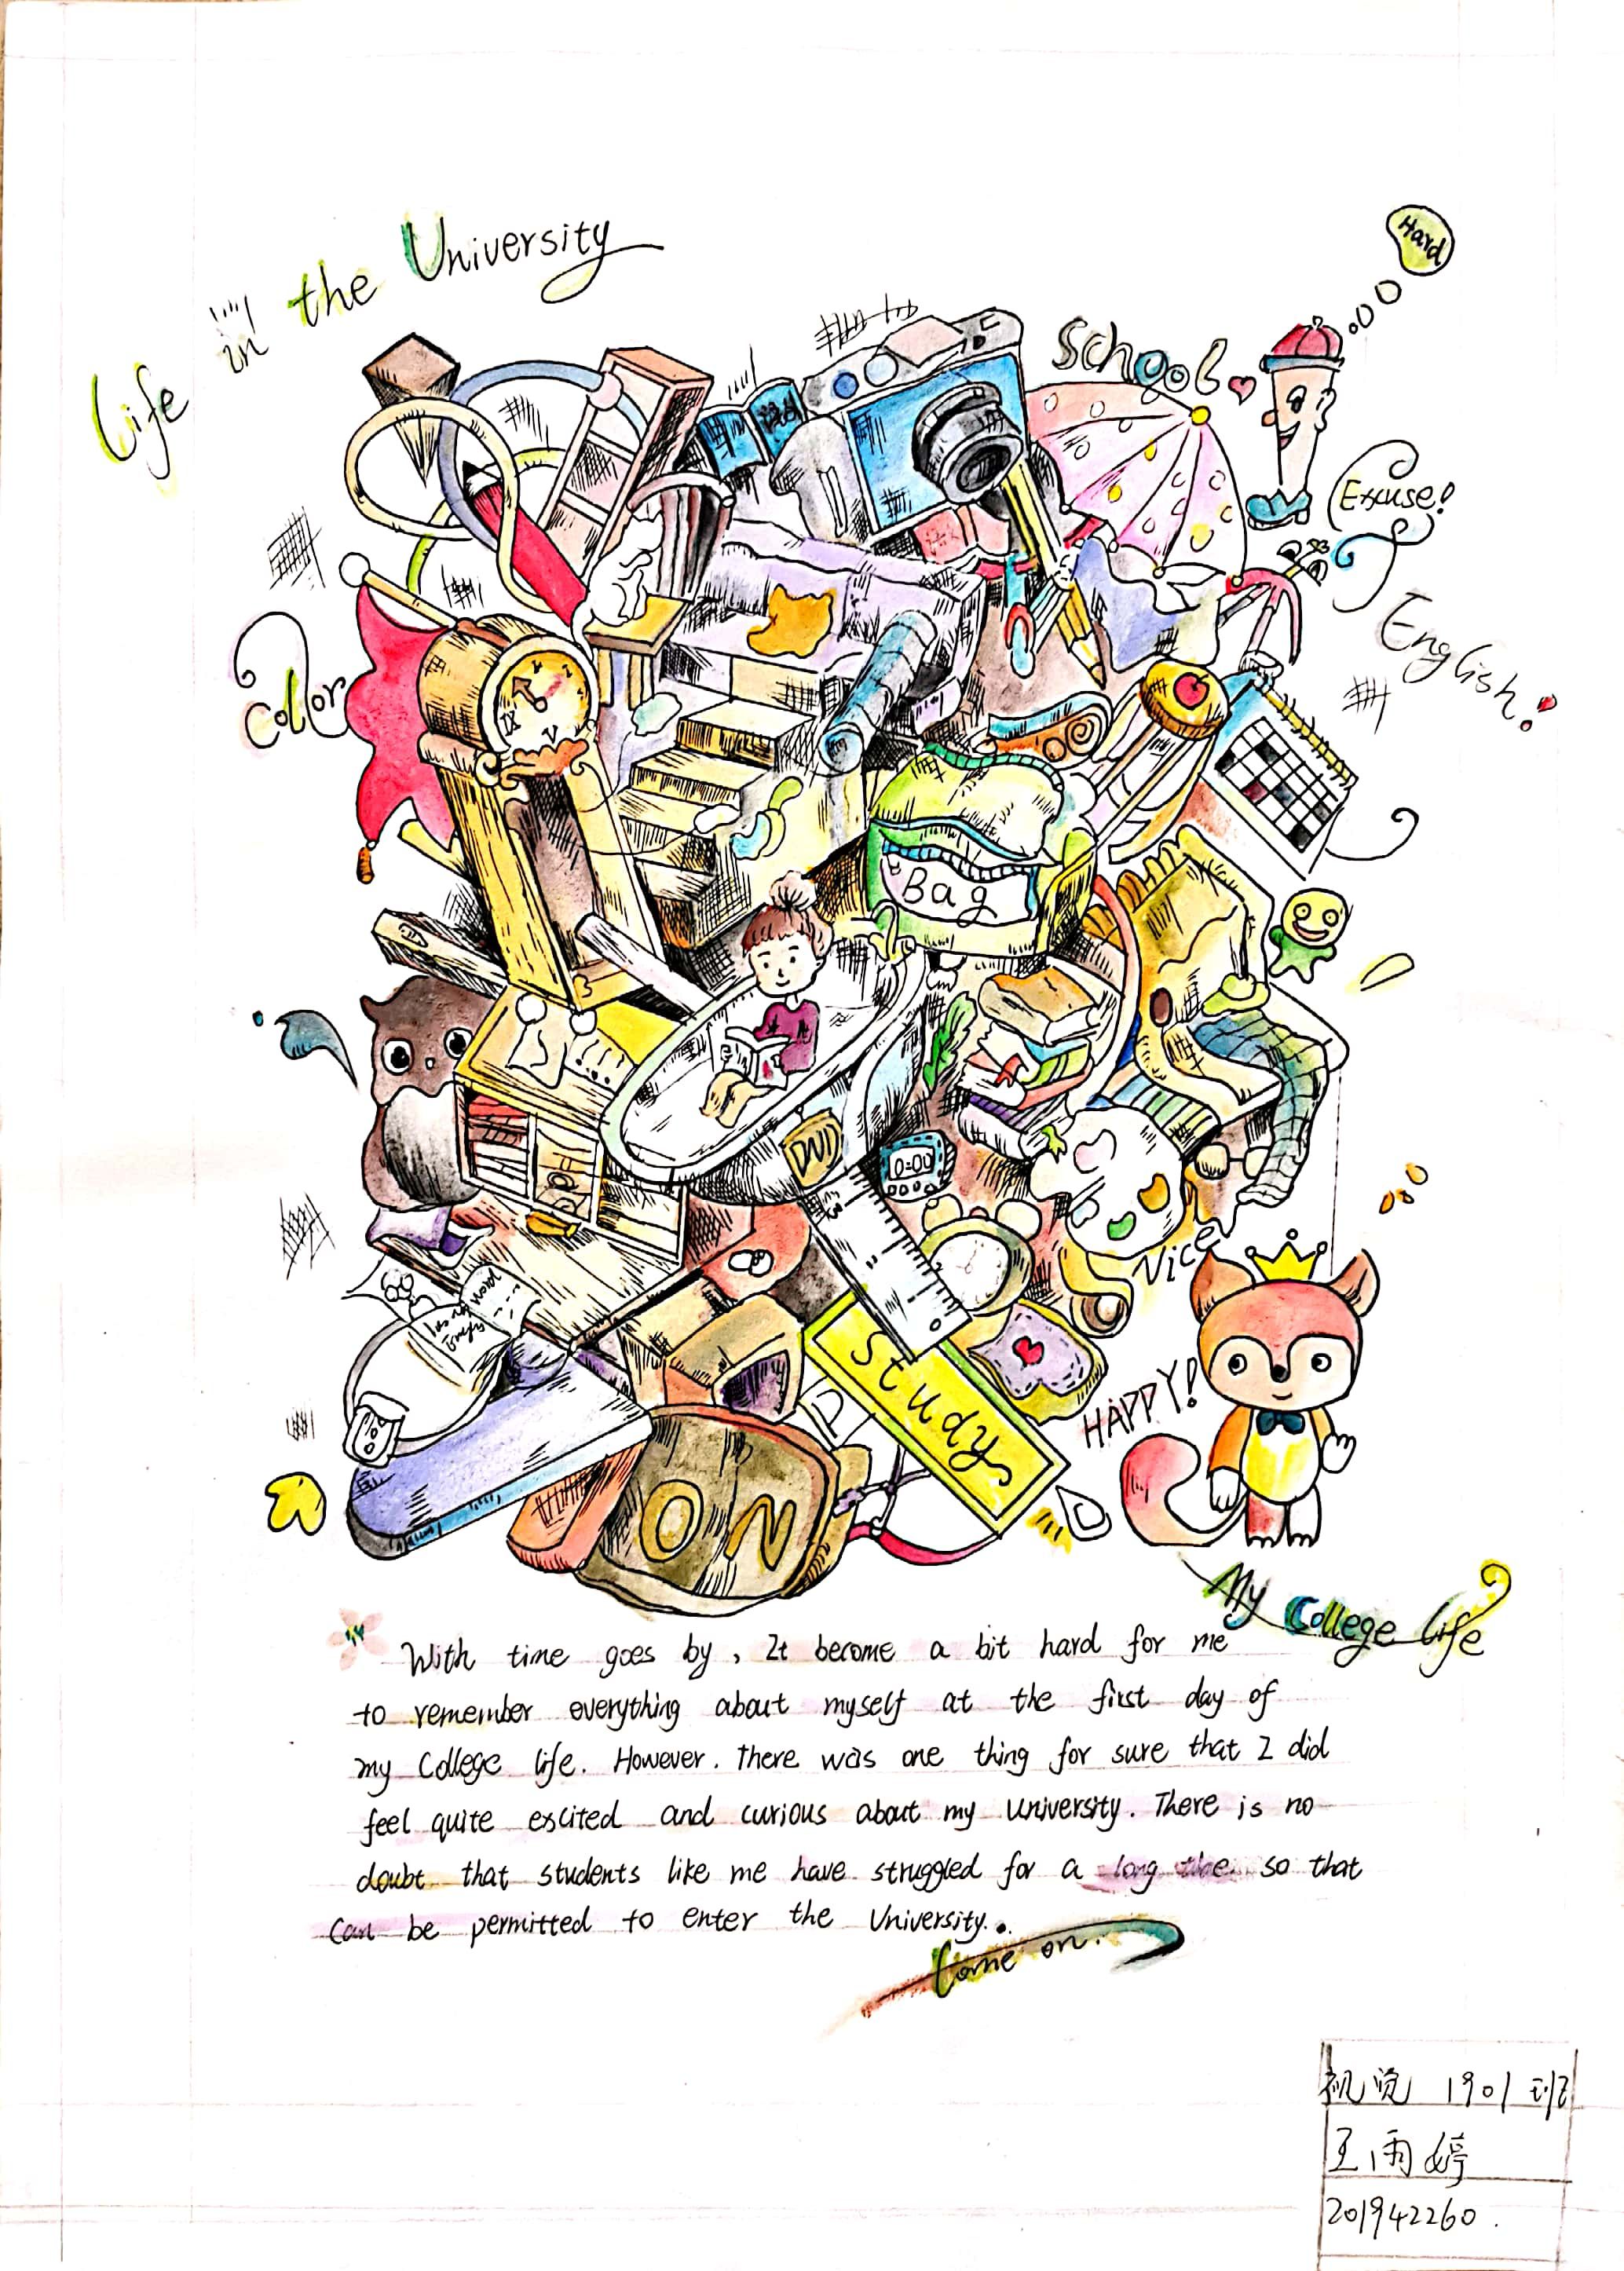 Life in the University
Hard
School
Excuse!
English!
Collor
IX
V
Bag
DVD
0:00
Nice
word
Study
HAPPY!
P
ON
My College life
With time goes by, It become a bit hard for me
to remember everything about myself at the first day of
my College life. However. There was one thing for sure that I did
feel quite escited and curious about my University. There is no
doubt that students like me have struggled for a long time so that
can be permitted to enter the University.
Come on.
视觉 1901班
王雨婷
201942260.